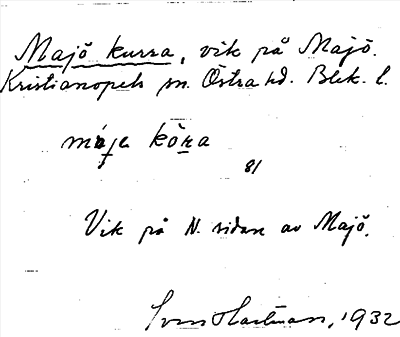 Majö kurra, vik på Majö.
Kristianopels sn. Östra hd. Blek. l.
81
Vik på N. sidan av Majö.
Sven Hartman, 1932